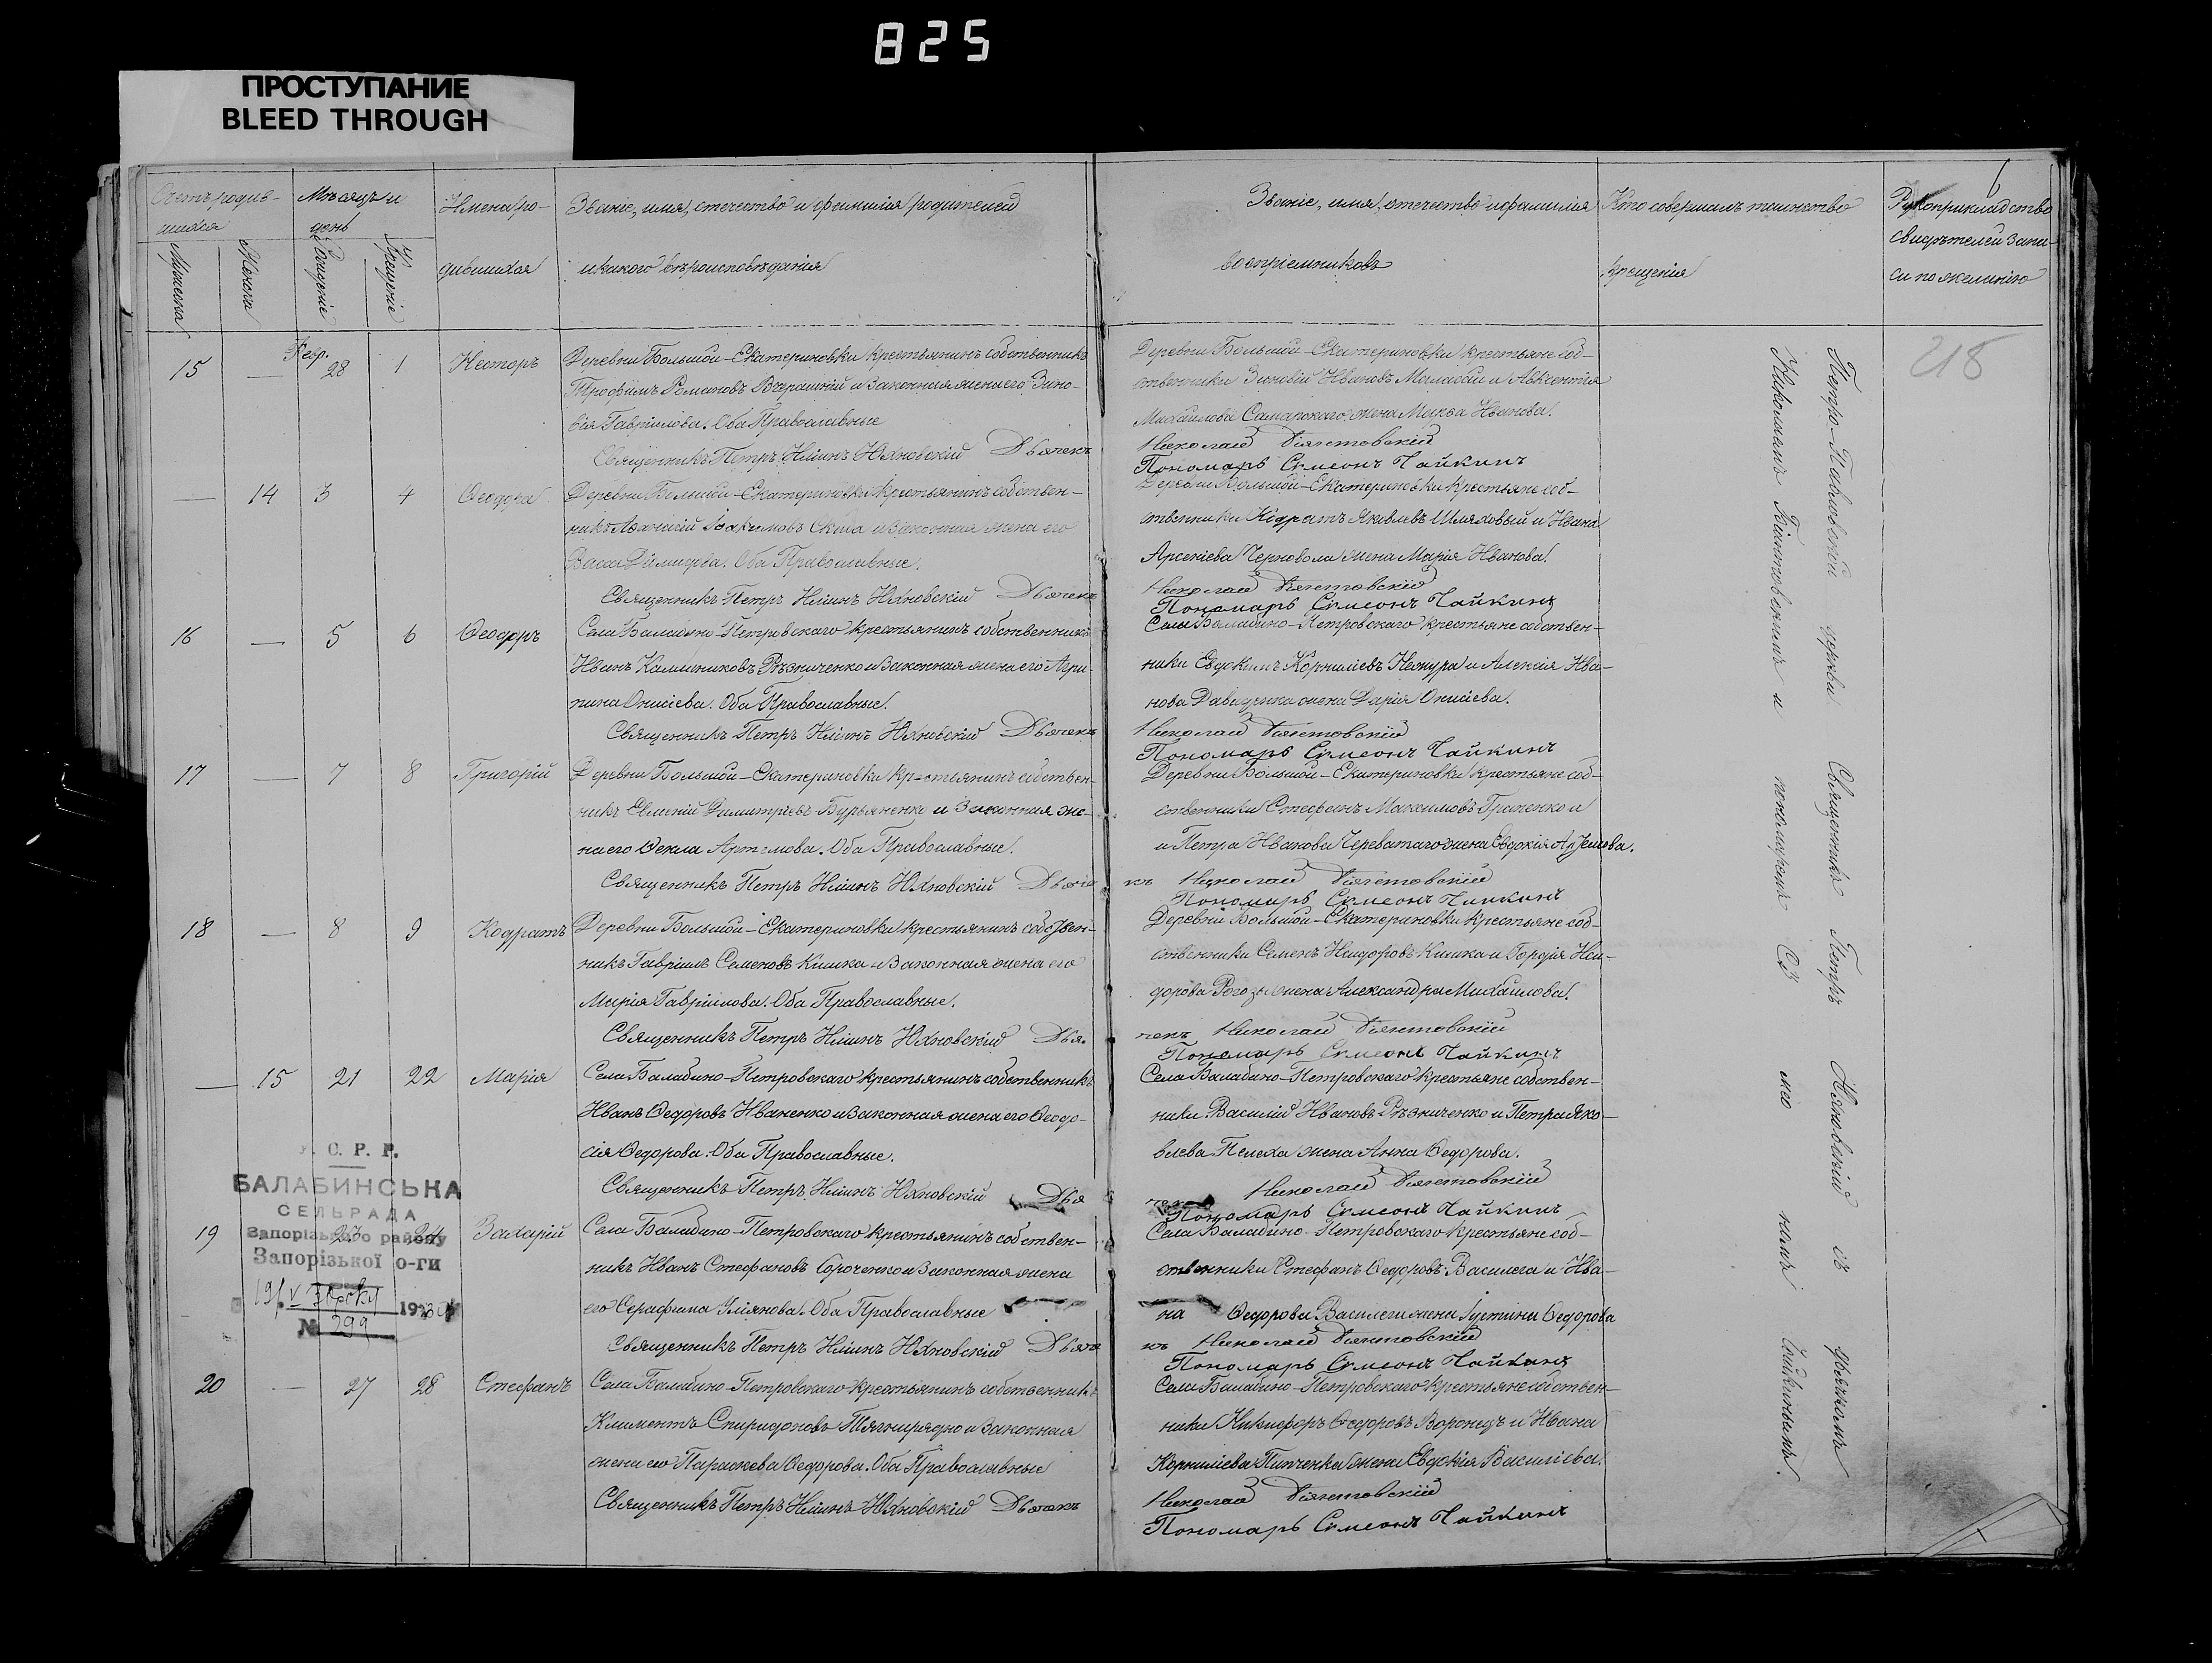 825
ПРОСТУПАНИЕ
BLEED THROUGH
Счетъ родив-
шихся
Мужеска
Женска
Мѣсяцъ и
день
Рожденіе
Крещеніе
Имена ро-
дившихся
Званіе, имя, отечество и фамилія родителей
и какого вѣроисповѣданія
Званіе, имя, отечество и фамилія
воспріемниковъ
Кто совершалъ таинство
крещенія
Рукоприкладство
свидѣтелей запи-
си по желанію
6
218
15 — Февр. 28 1 Несторъ
Деревни Большой-Екатериновки крестьянинъ собственникъ
Трофимъ Романовъ и законная жена его Зино-
вія Гавріилова. Оба Православные
Священникъ Петръ Юхновскій Дьячекъ
Деревни Большой-Екатериновки крестьяне соб-
ственники Зиновій Ивановъ и Авксентія
Михайлова Самарскаго жена Иванова.
Николай
Пономарь Симеонъ Чайкинъ
— 14 3 4 Ѳеодора
Деревни Большой-Екатериновки крестьянинъ собствен-
никъ Аѳанасій Іоакимовъ Скида и законная жена его
Васса. Оба Православные.
Священникъ Петръ Юхновскій Дьячекъ
Деревни Большой-Екатериновки крестьяне соб-
ственники Кодратъ Яковлевъ Шляховый и Ивана
Арсеніева Черновола жена Марія Иванова.
Николай
Пономарь Симеонъ Чайкинъ
16 — 5 6 Ѳеодоръ
Села Балабино-Петровскаго крестьянинъ собственникъ
Иванъ Калинниковъ Рѣзниченко и законная жена его Агри-
пина Онисіева. Оба Православные.
Священникъ Петръ Юхновскій Дьячекъ
Села Балабино-Петровскаго крестьяне собствен-
ники Евдокимъ Корниліевъ и Алексія Ива-
нова Давиденка жена Дарія Онисіева.
Николай
Пономарь Симеонъ Чайкинъ
17 — 7 8 Григорій
Деревни Большой-Екатериновки крестьянинъ собствен-
никъ Димитріевъ Бурьяненко и законная же-
на его Ѳекла Артемова. Оба Православные.
Священникъ Петръ Юхновскій Дьяче
Деревни Большой-Екатериновки крестьяне соб-
ственники Стефанъ Максимовъ Гриненко и
и Петра Иванова Череватаго жена Евдокія Артемова.
къ Николай
Пономарь Симеонъ Чайкинъ
18 — 8 9 Кодратъ
Деревни Большой-Екатериновки крестьянинъ собствен-
никъ Гавріилъ Семеновъ Кишка и законная жена его
Марія Гавріилова. Оба Православные.
Священникъ Петръ Юхновскій Дья-
Деревни Большой-Екатериновки крестьяне соб-
ственники Семенъ Исидоровъ Кишка и Гордія Иси-
дорова Рогозы жена Александра Михайлова.
чекъ Николай
Пономарь Симеонъ Чайкинъ
— 15 21 22 Марія
Села Балабино-Петровскаго крестьянинъ собственникъ
Иванъ Ѳедоровъ Иваненко и законная жена его Ѳеодо-
сія Ѳедорова. Оба Православные.
Священникъ Петръ Юхновскій Дья
Села Балабино-Петровскаго крестьяне собствен-
ники Василій Ивановъ Рѣзниченко и Петра Яко-
влева Пелеха жена Анна Ѳедорова.
Николай
Пономарь Симеонъ Чайкинъ
19 23 24 Захарій
Села Балабино-Петровскаго крестьянинъ собствен-
никъ Иванъ Стефановъ Сороченко и законная жена
его Серафима Уліянова. Оба Православные
Священникъ Петръ Юхновскій Дьяче
Села Балабино-Петровскаго крестьяне соб-
ственники Стефанъ Ѳедоровъ Василега и Ива-
на Ѳедорова Василеги жена Іустина Ѳедорова
къ Николай
Пономарь Симеонъ Чайкинъ
20 — 27 28 Стефанъ
Села Балабино-Петровскаго крестьянинъ собственникъ
Климентъ Спиридоновъ Тягнирядно и законная
жена его Параскева Ѳедорова. Оба Православные
Священникъ Петръ Юхновскій Дьячекъ
Села Балабино-Петровскаго крестьяне собствен-
ники Никифоръ Ѳедоровъ Воронецъ и Ивана
Корниліева Пипченка жена Евдокія Василіева.
Николай
Пономарь Симеонъ Чайкинъ
Петро-Павловской церкви Священникъ Петръ Юхновскій съ дьячкомъ
Николаемъ и пономаремъ Чайкинымъ.
С. Р. Р.
БАЛАБИНСЬКА
СЕЛЬРАДА
Запорізького району
Запорізької о-ги
№ 299